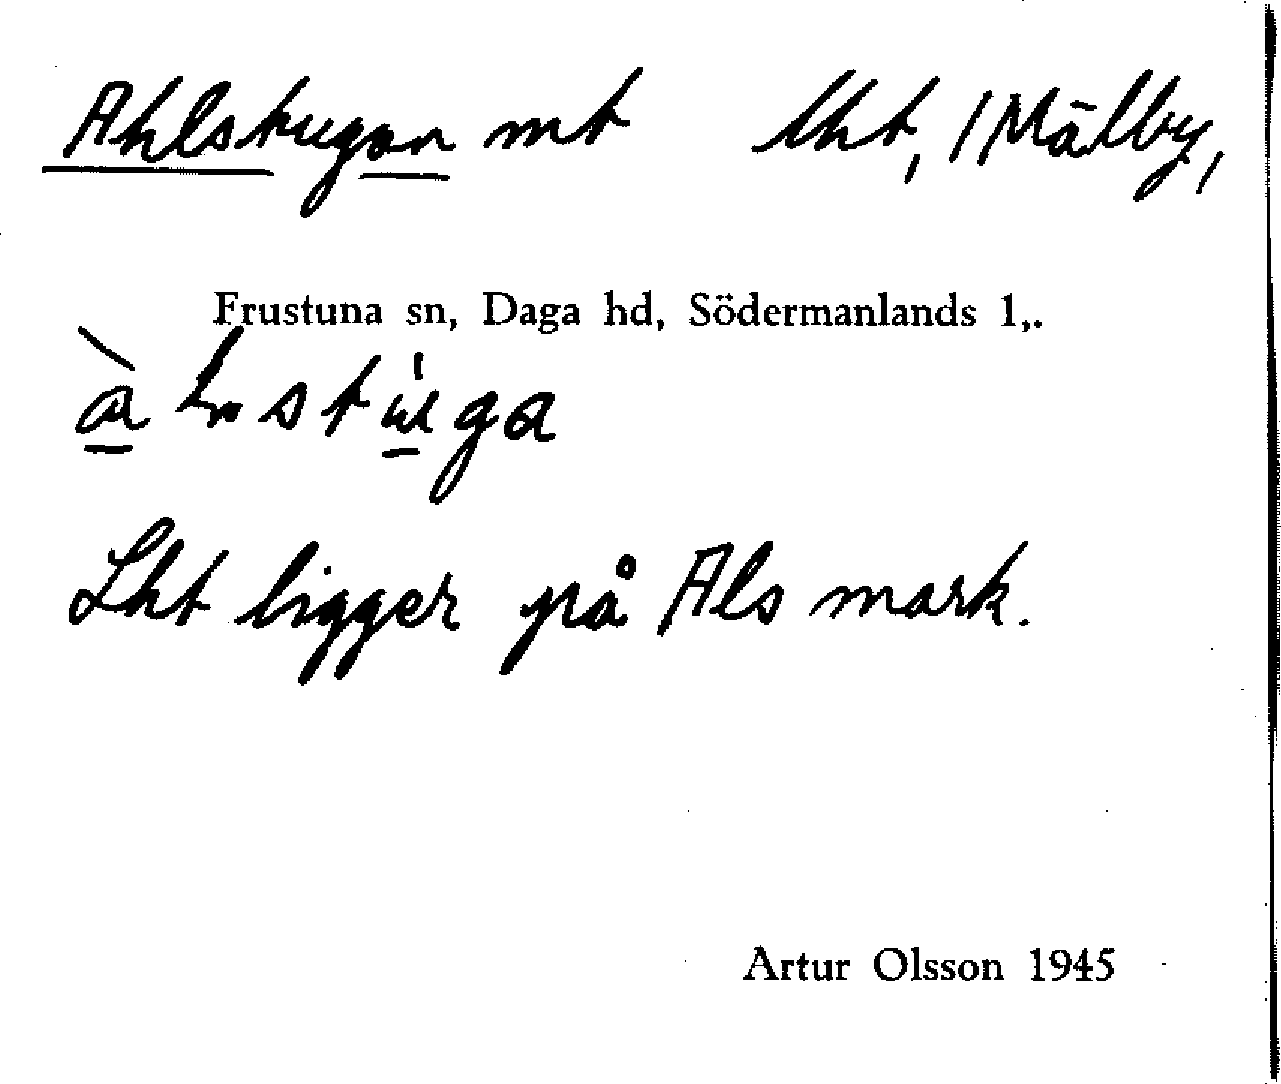 Ahlstugan mt lht, /Mälby,
Frustuna sn, Daga hd, Södermanlands l,.
Lht ligger på Als mark.
Artur Olsson 1945